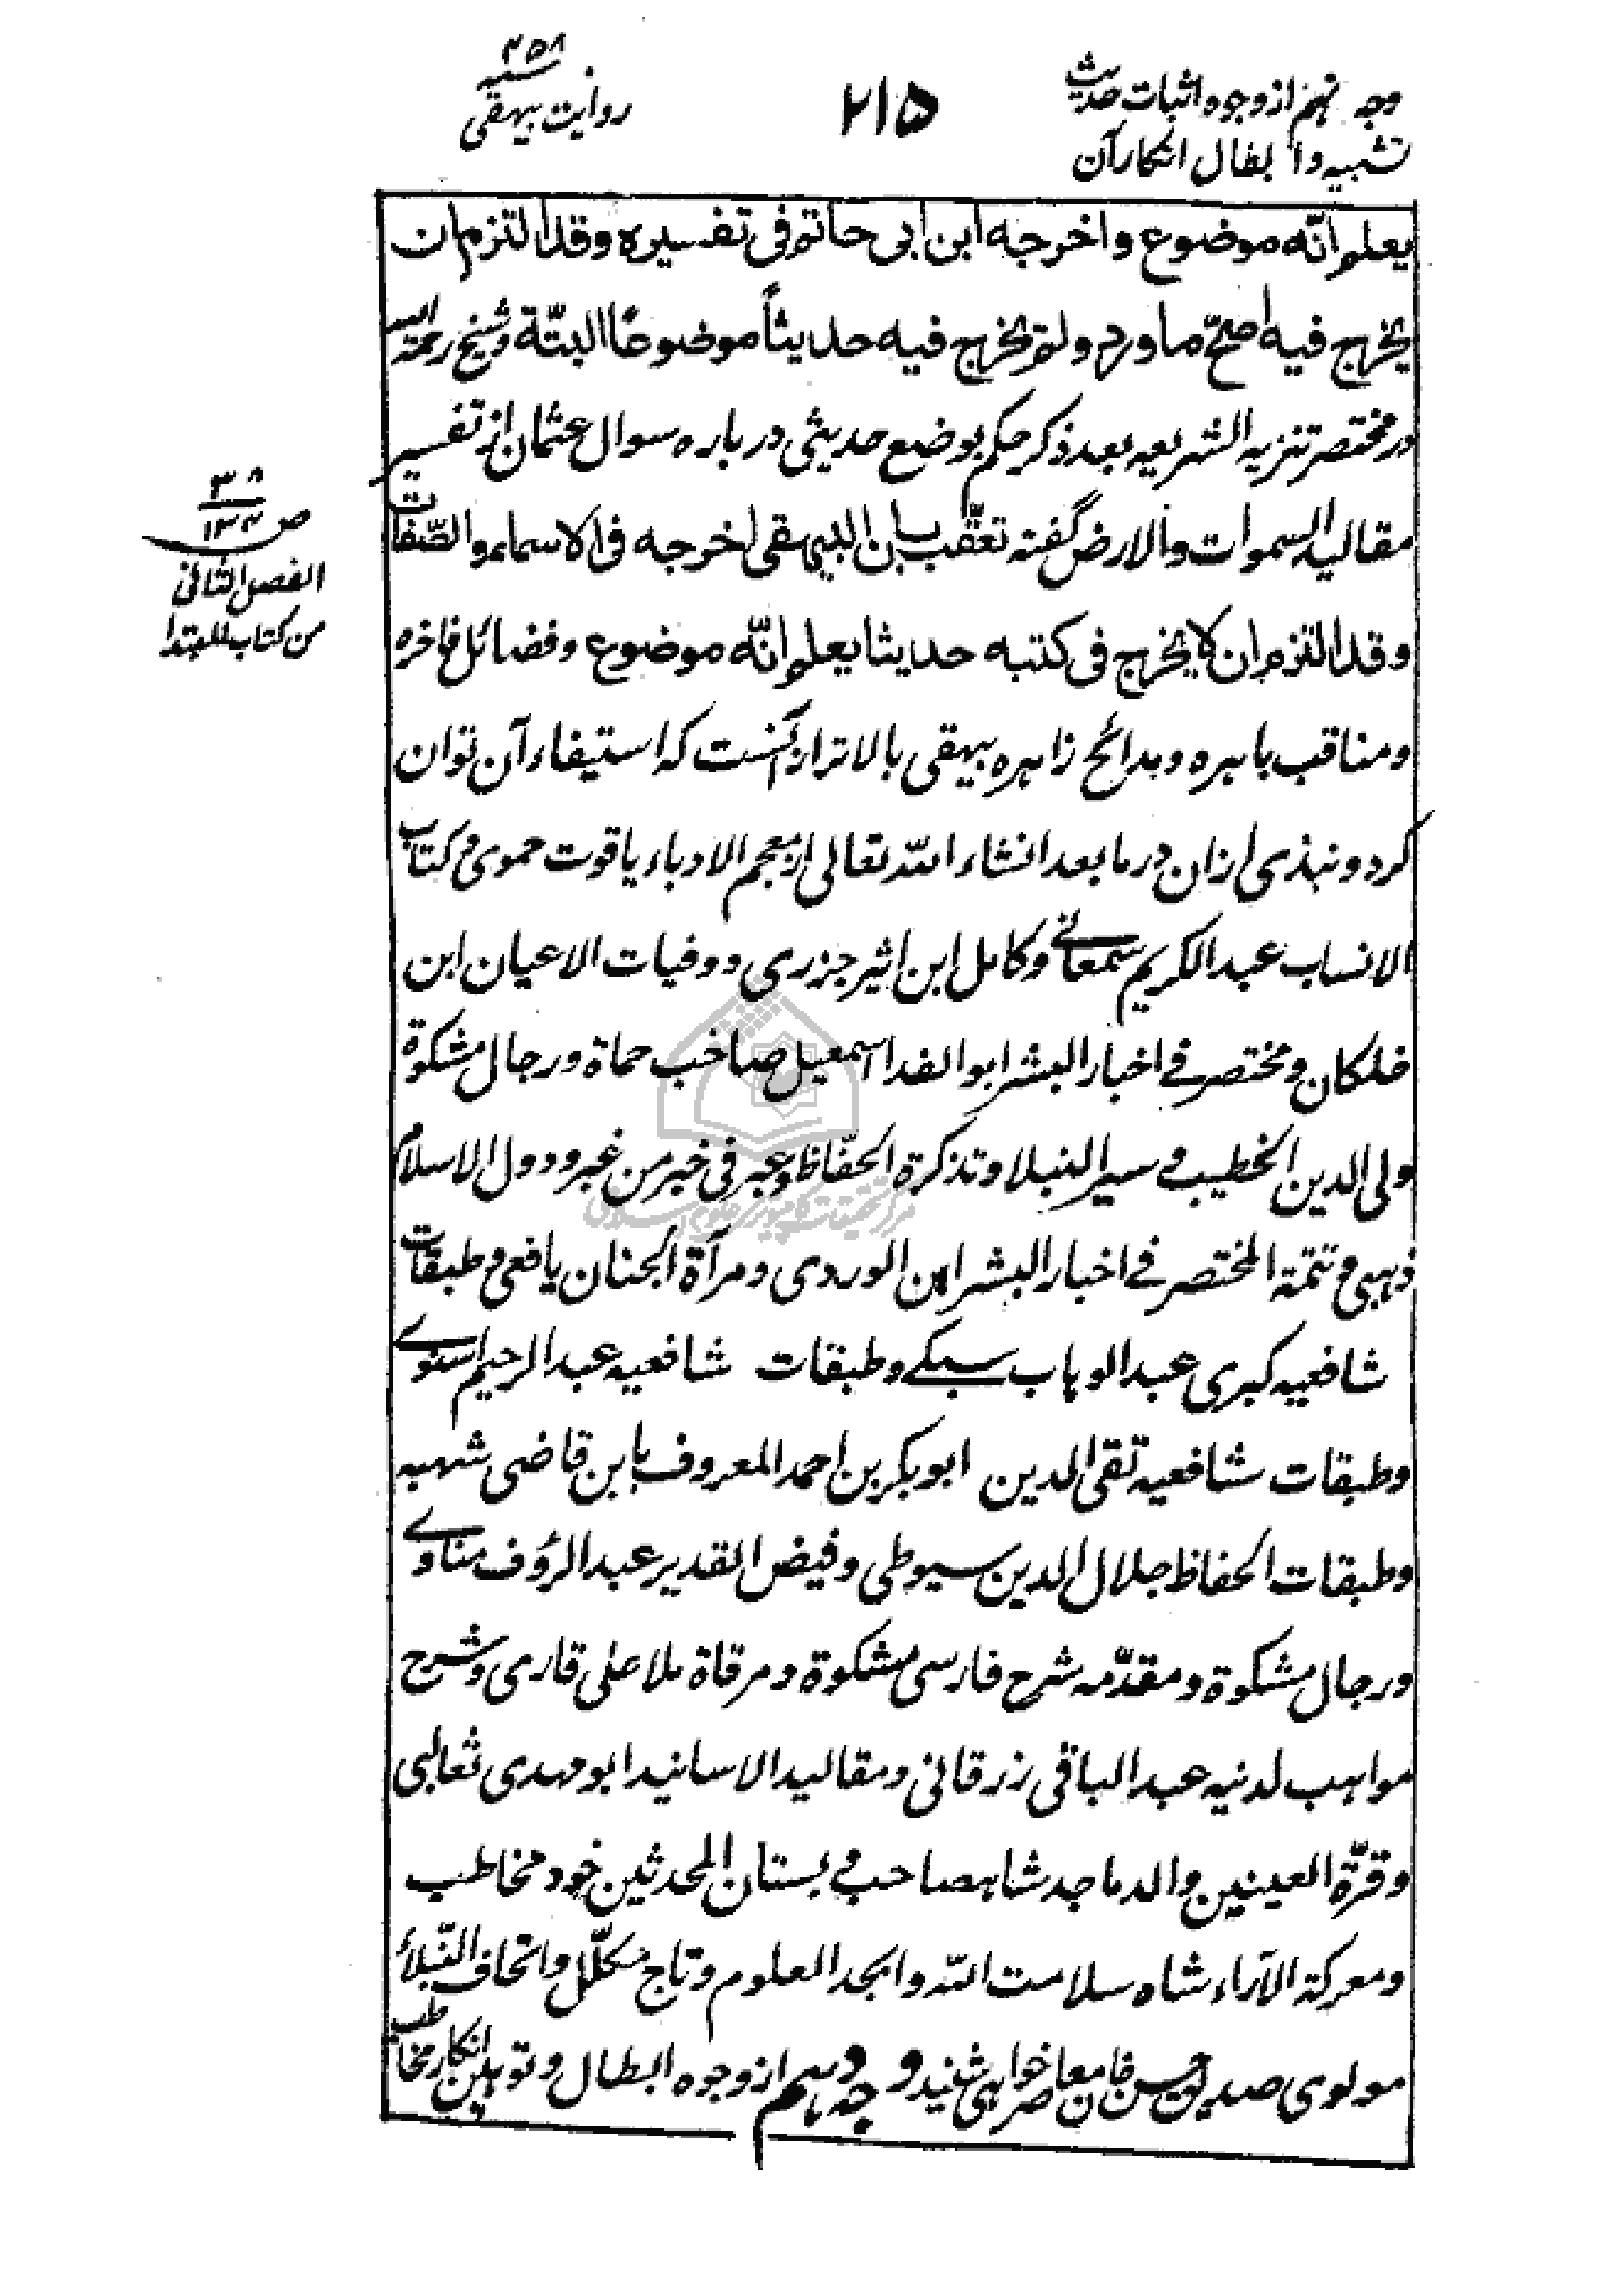 وجه نهم از وجوه اثبات حدیث
تشبیه و ابطال انکار آن
۲۱۵
۴۵۸
سنه
روایت بیهقی
یعلم انّه موضوع واخرجه ابن ابی حاتم فی تفسیره وقد التزم ان
یخرج فیه اصحّ ما ورد ولم یخرج فیه حدیثاً موضوعًا البتّة و شیخ رحمة الله
در مختصر تنزیه الشریعه بعد ذکر حکم بوضع حدیثی درباره سوال عثمان از تفسیر
مقالید السموات والارض گفته تعقّب بان البیهقی اخرجه فی الاسماء والصّفات
وقد التزم ان لا یخرج فی کتبه حدیثا یعلم انّه موضوع و فضائل فاخره
و مناقب باهره و مدائح زاهره بیهقی بالاتر از آنست که استیفاء آن توان
کرد و نبذی ازان در ما بعد انشاء الله تعالی از معجم الادباء یاقوت حموی و کتاب
الانساب عبد الکریم سمعانے و کامل ابن اثیر جزری و وفیات الاعیان ابن
خلکان و مختصر فے اخبار البشر ابو الفدا اسمعیل صاحب حماة و رجال مشکوة
ولی الدین الخطیب و سیر النبلا و تذکرة الحفّاظ و عبر فی خبر من غبر و دول الاسلام
ذهبی و تتمة المختصر فے اخبار البشر ابن الوردی و مرآة الجنان یافعی و طبقات
شافعیه کبری عبد الوهاب سبکے و طبقات شافعیه عبد الرحیم اسنوے
و طبقات شافعیه تقی الدین ابو بکر بن احمد المعروف بابن قاضی شهبه
و طبقات الحفاظ جلال الدین سیوطی و فیض القدیر عبد الرؤف مناوے
و رجال مشکوة و مقدّمه شرح فارسی مشکوة و مرقاة ملا علی قاری و شرح
مواهب لدنیه عبد الباقی زرقانی و مقالید الاسانید ابو مهدی ثعالبی
و قرّة العینین والد ماجد شاهصاحب و بستان المحدثین خود مخاطب
و معرکة الآراء شاه سلامت الله و ابجد العلوم و تاج مکلّل و اتحاف النّبلاء
مولوی صدیق حسن خان معاصر خواهی شنید وجه دهم از وجوه ابطال و توهین انکار مخاطب
۳۸
ص ۱۳۴
الفصل الثانی
من کتاب المبتدا